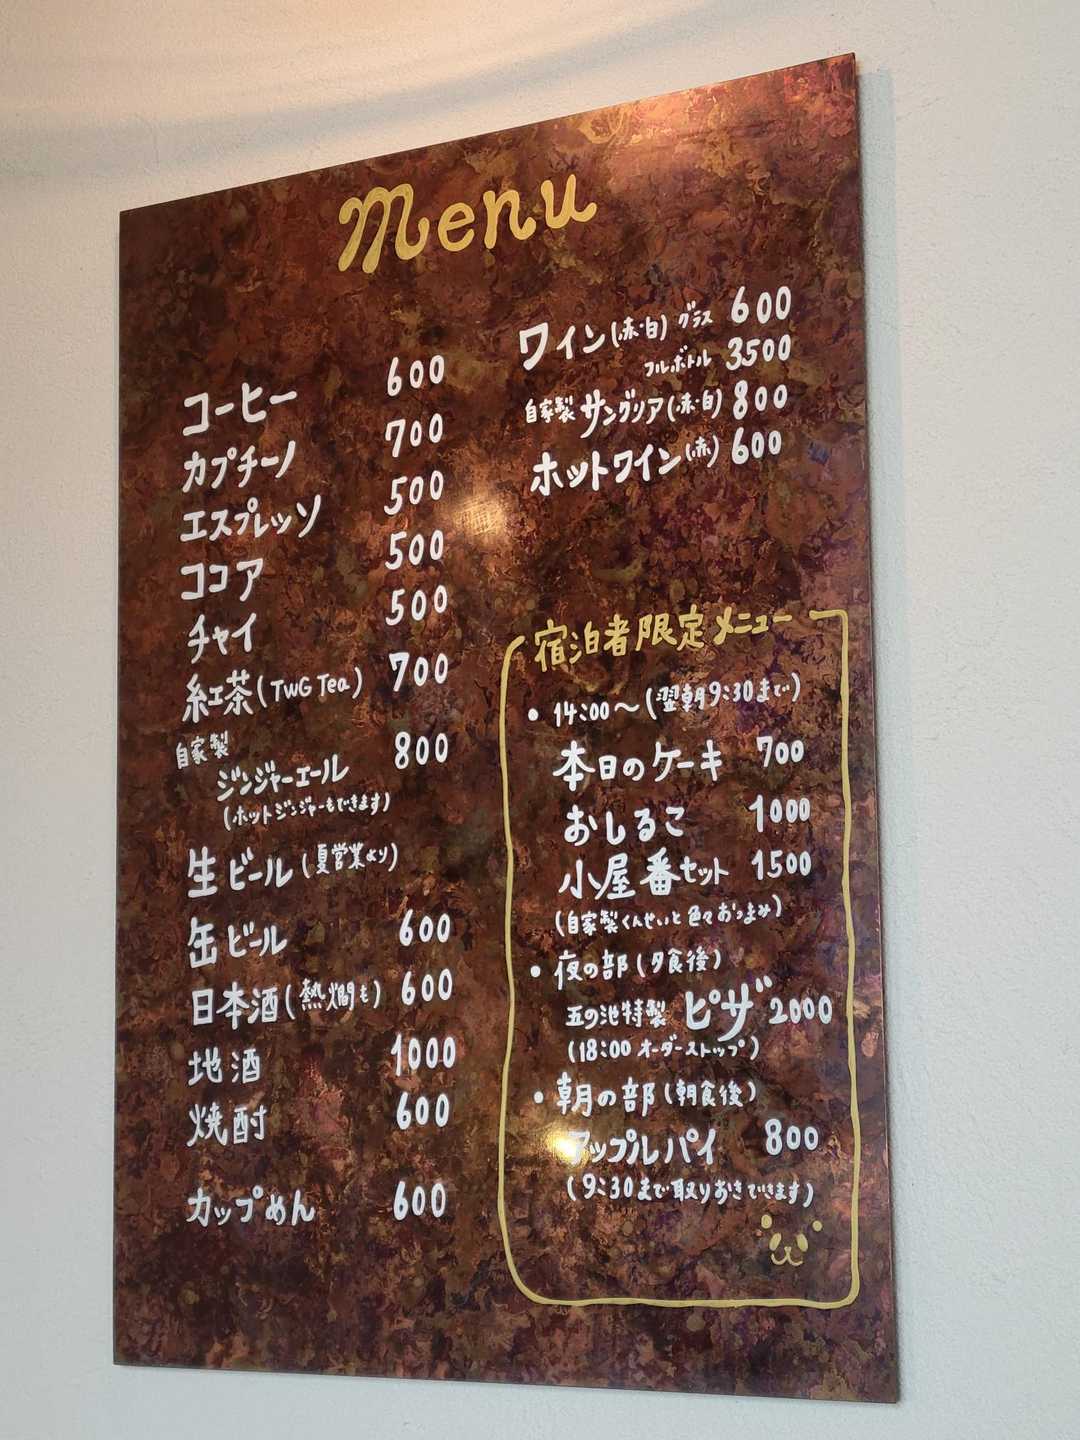 Menu
コーヒー 600
カプチーノ 700
エスプレッソ 500
ココア 500
チャイ 500
紅茶(TWG Tea) 700
自家製
ジンジャーエール 800
(ホットジンジャーもできます)
生ビール(夏営業より)
缶ビール 600
日本酒(熱燗も) 600
地酒 1000
焼酎 600
カップめん 600
ワイン(赤・白) グラス 600
フルボトル 3500
自家製 サングリア(赤・白) 800
ホットワイン(赤) 600
宿泊者限定メニュー
・14:00〜(翌朝9:30まで)
本日のケーキ 700
おしるこ 1000
小屋番セット 1500
(自家製くんせいと色々おつまみ)
・夜の部(夕食後)
五の池特製 ピザ 2000
(18:00 オーダーストップ)
・朝の部(朝食後)
アップルパイ 800
(9:30まで取りおきできます)